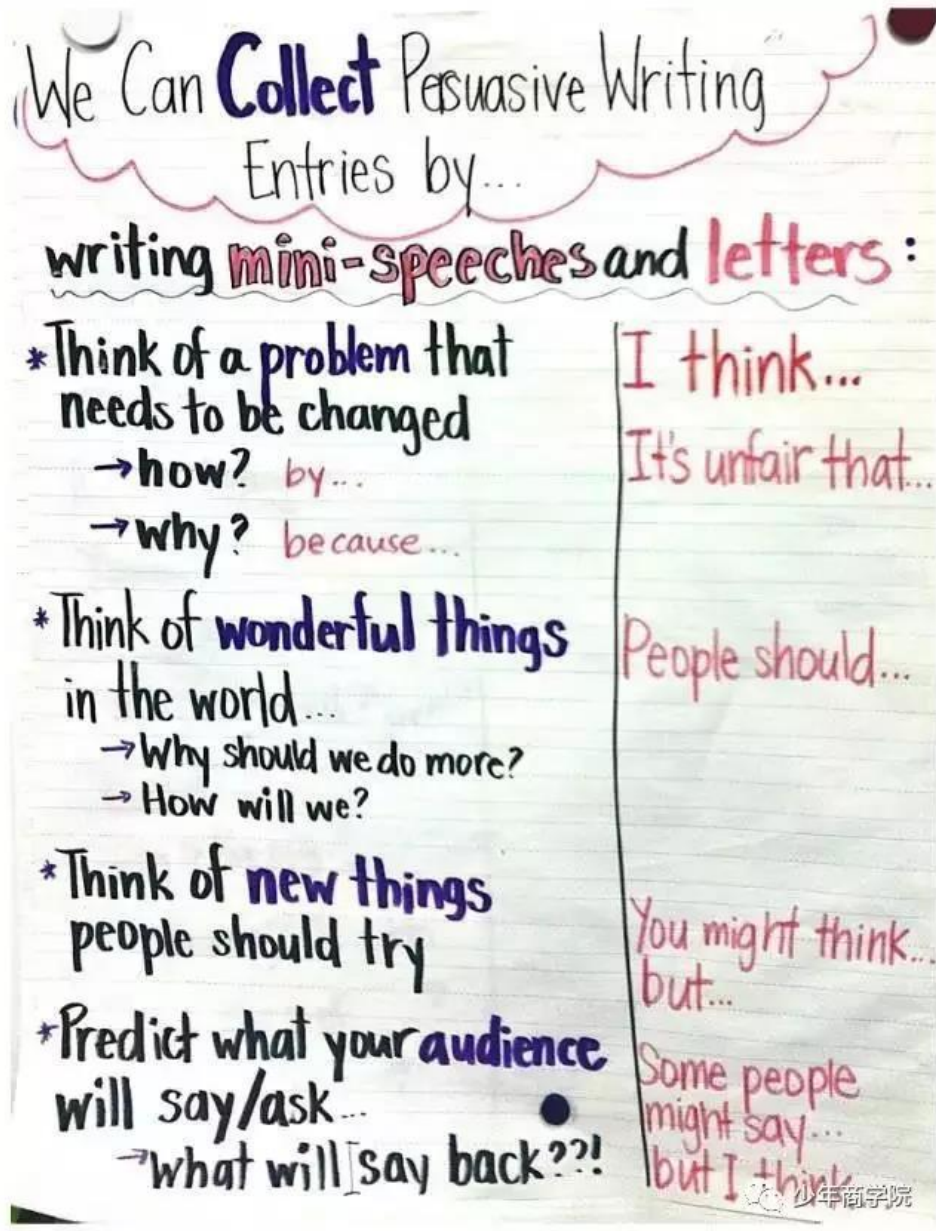 We Can Collect Persuasive Writing
Entries by...
writing mini-speeches and letters:
*Think of a problem that
needs to be changed
→how? by...
→why? because...
*Think of wonderful things
in the world...
→Why should we do more?
→How will we?
*Think of new things
people should try
*Predict what your audience
will say/ask...
→What will I say back??!
I think...
It's unfair that...
People should...
You might think...
but...
Some people
might say...
but I think
少年商学院